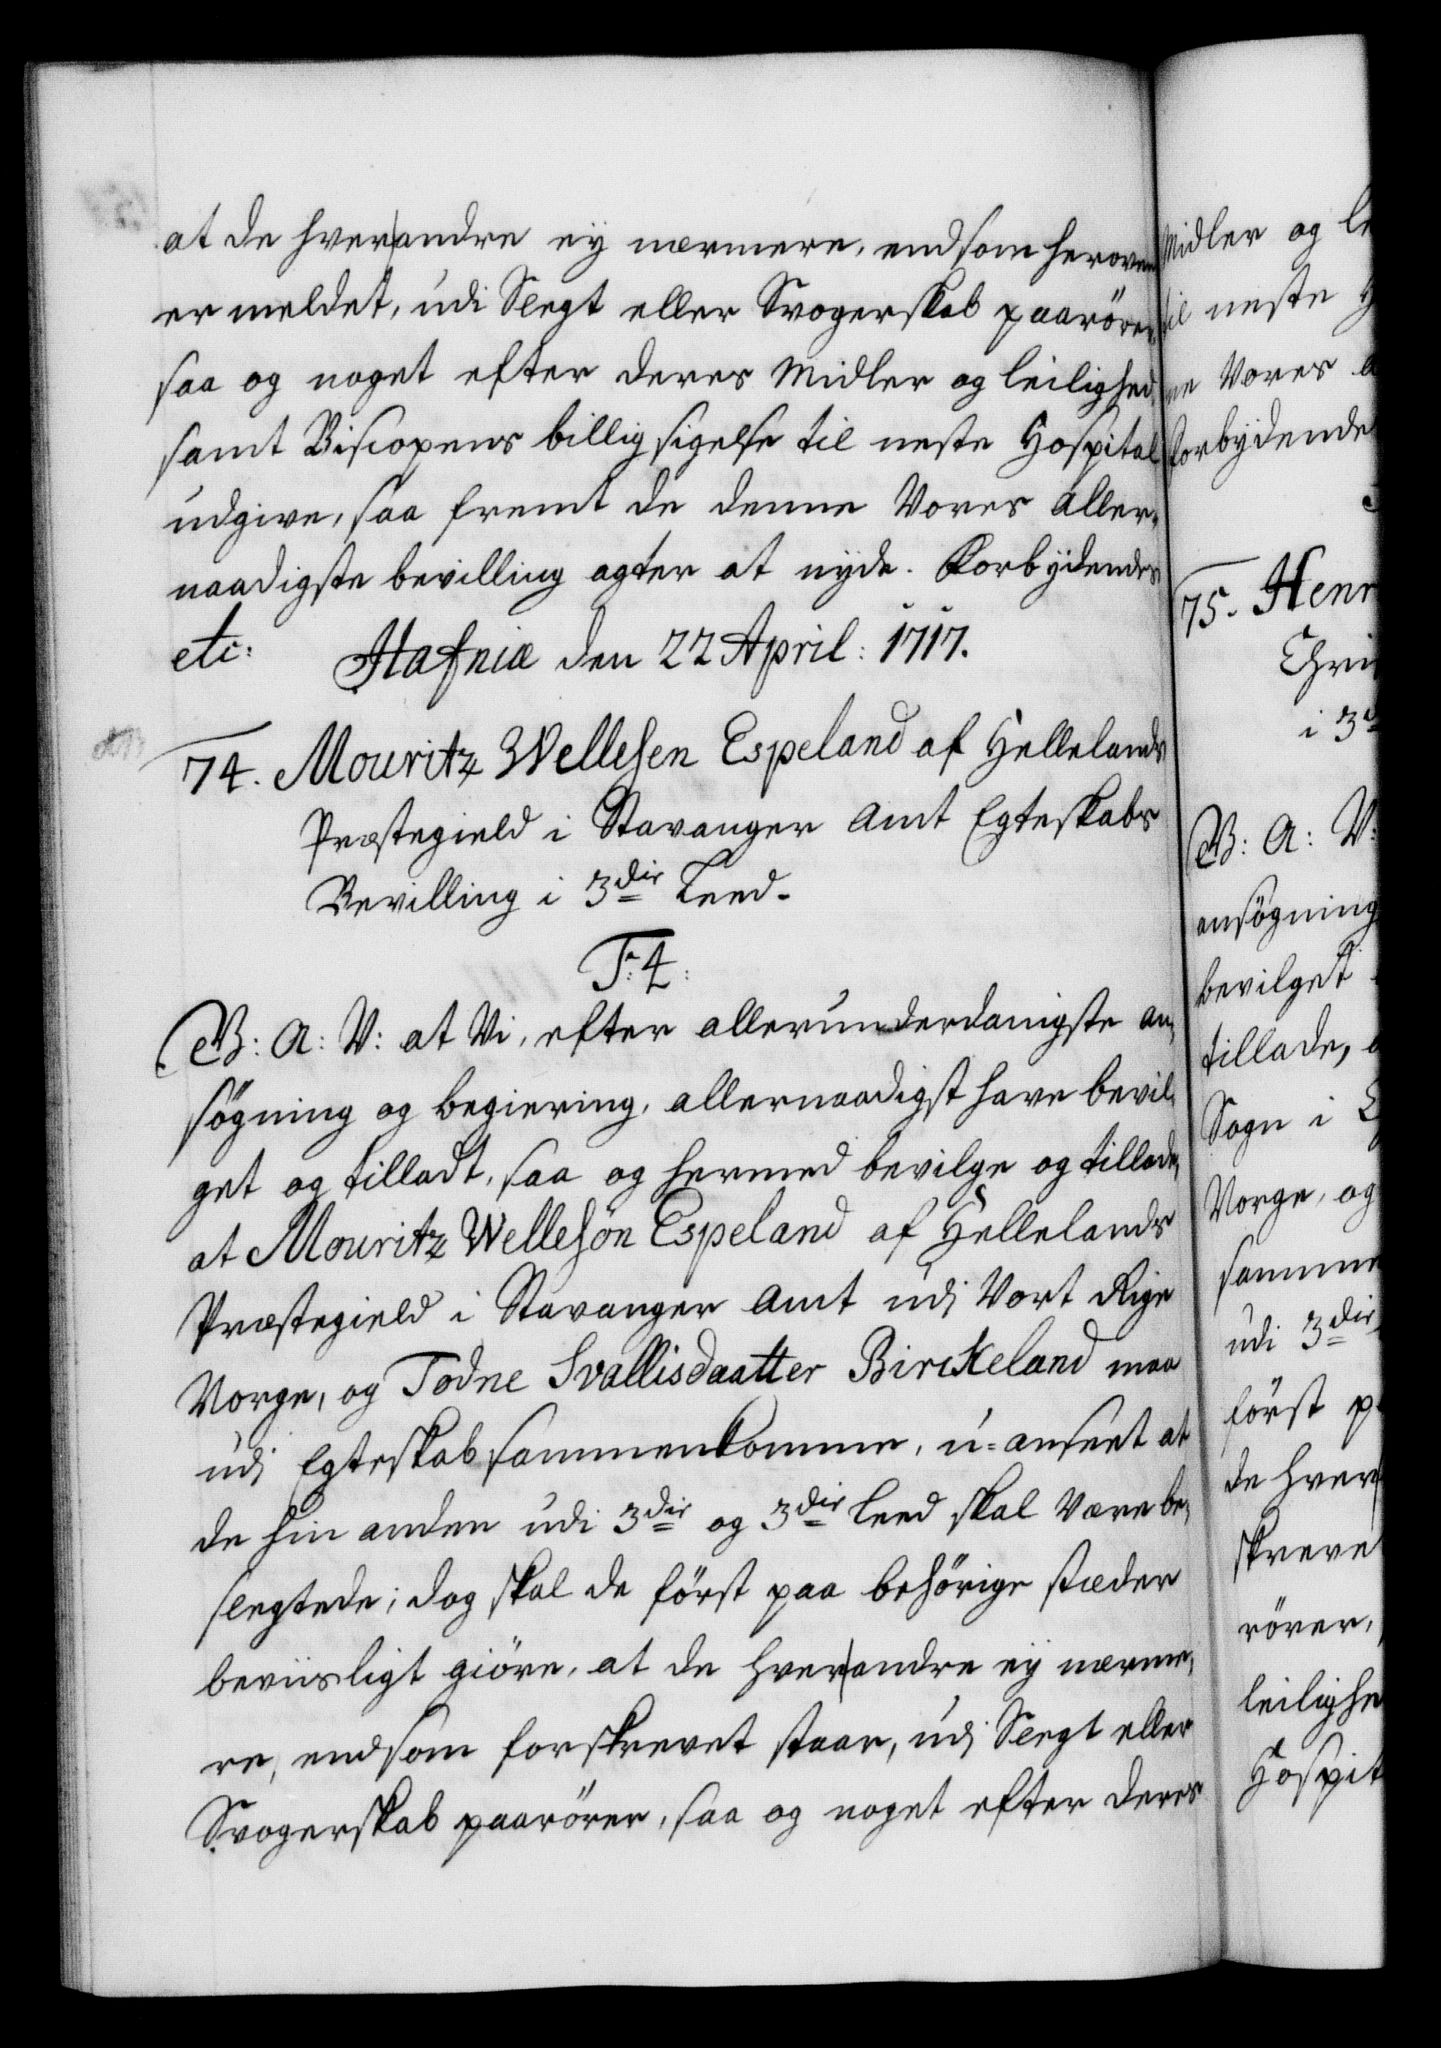 at de hverandre ey nærmere, end som heroven
er meldet, udi Slegt eller Svogerskab paarörer,
saa og noget efter deres Midler og leilighed,
samt Biscopens billig sigelse til neste Hospital
udgive, saa fremt de denne Vores aller-
naadigste bevilling agter at nyde. Forbydendes
etc: Hafniæ den 22 April: 1717.
74. Mouritz Wellesen Espeland af Hellelands
Præstegield i Stavanger Amt Egteskabs
Bevilling i 3die Leed.
F: 4.
G: A: V: at Vi, efter allerunderdanigste an-
søgning og begiering, allernaadigst have bevil-
get og tilladt, saa og hermed bevilge og tillade,
at Mouritz Wellesön Espeland af Hellelands
Præstegield i Stavanger Amt udj Vort Rige
Norge, og Todne Svallisdaatter Birckeland maa
udj Egteskab sammenkomme, u-anseet at
de hin anden udi 3die og 3die Leed skal være be-
slegtede; dog skal de först paa behörige stæder
beviisligt giöre, at de hverandre ey nærme-
re, end som forskrevet staar, udj Slegt eller
Svogerskab paarörer, saa og noget efter deres
Midler og le
til neste H
ne Vores a
Forbydende
75. Henr
Chri
i 3
G: A: V:
ansøgning
bevilget
tillade,
Sogn i
Norge, og
samme
udi 3die
först p
de hver
skreve
rörer,
leilighe
Hospit